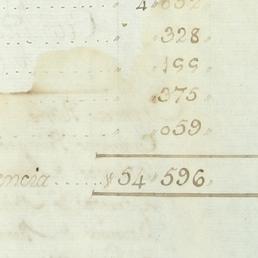 328
199
375
059
encia .... $54 596